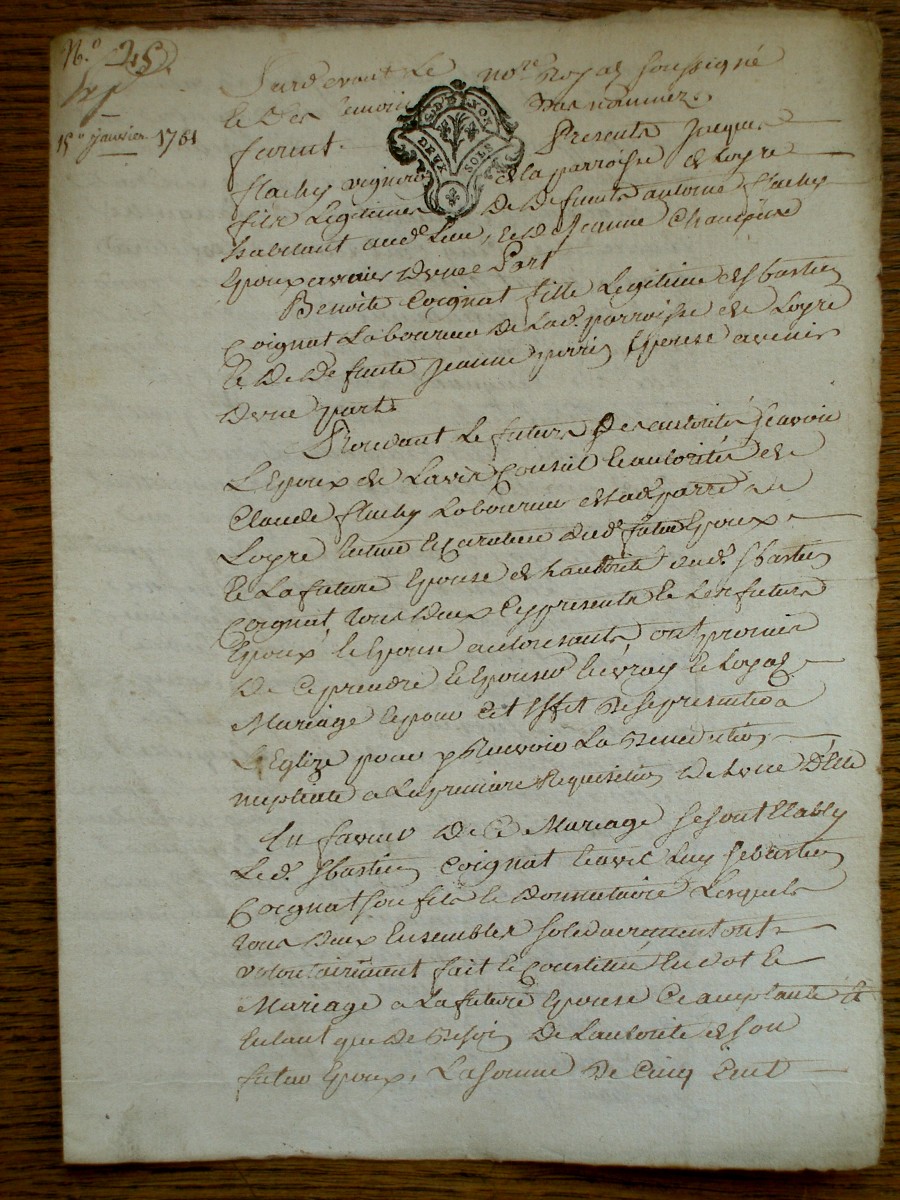 N.o 25
15e janvier 1761
Pardevant Le no.re Royal soussigné
G. D. LYON
DEUX SOLS
et Des temoins bas nommez.
furent. Presents Jacques
flachy vigneron de la parroisse de Loyre
fils Legitime de Defunts antoine flachy
habitant aud. Lieu, et de Jeanne
Epoux avenir d'une Part
Benoite Coignat fille Legitime de sbastien
Coignat Laboureur De Lad. parroisse de Loyre
et De Defunte Jeanne perrin Epouse avenir
D'une part
Procedant Le futur De autorité sçavoir
L'Epoux de L'avis Conseil et autorité de
Claude flachy Laboureur de lad. parr.e de
Loyre dud. futur Epoux
et La future Epouse de Lautorité dud. sbastien
Coignat, tous Deux cy presents et Les futurs
Epoux et Epouse autorisants, ont promis
De ce prendre et Epouser en vray et Loyal
Mariage et pour cet Effet De se presenter a
L'Eglize pour y Recevoir La Benediction
nuptiale a La premiere Requisition De L'une D'Elle
En faveur De Ce Mariage se sont Etably
Le d. sbastien Coignat et avec Luy sebastien
Coignat son fils et Donnataire Lesquels
tous Deux Ensembles solidairement ont
volontairement fait et Constitué En dot et
Mariage a La future Epouse Ce acceptante
En tant que De Besoin De Lautorité de son
futur Epoux, La somme De Cinq Cent